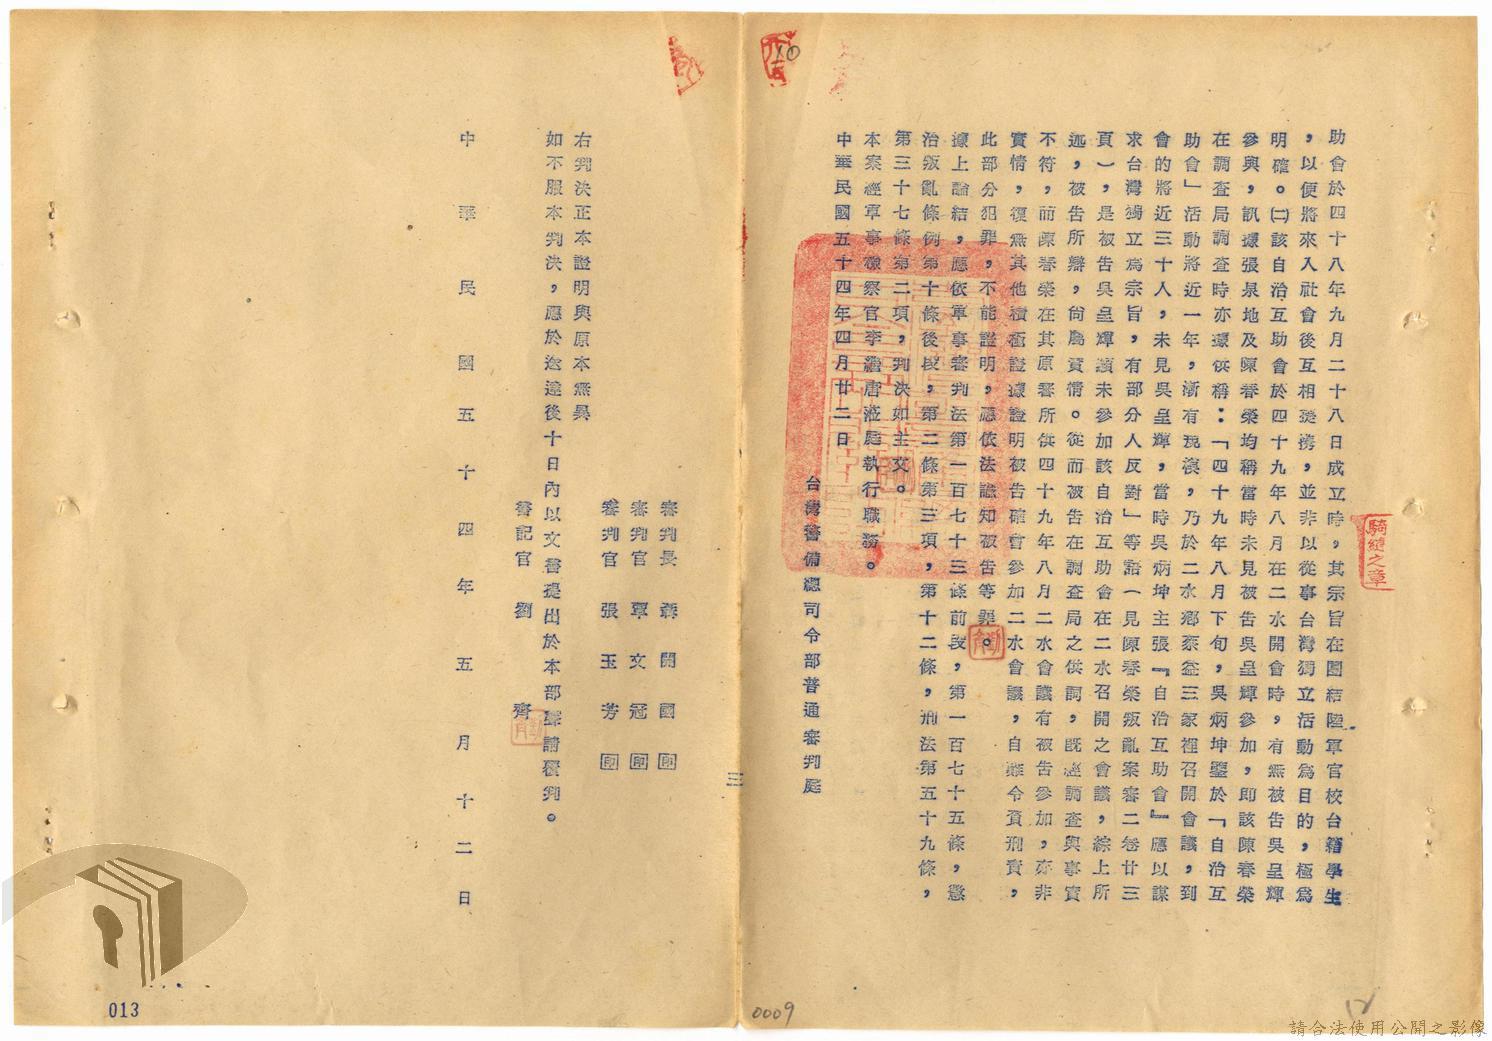 助會於四十八年九月二十八日成立時，其宗旨在團結陸軍官校台籍學生
，以便將來入社會後互相提携，並非以從事台灣獨立活動為目的，極為
明確。㈡該自治互助會於四十九年八月在二水開會時，有無被告吳呈輝
參與，訊據張泉地及陳春榮均稱當時未見被告吳呈輝參加，即該陳春榮
在調查局調查時亦據供稱：「四十九年八月下旬，吳炳坤鑒於「自治互
助會」活動將近一年，漸有規模，乃於二水鄉蔡益三家裡召開會議，到
會的將近三十人，未見吳呈輝，當時吳炳坤主張『自治互助會』應以謀
求台灣獨立為宗旨，有部分人反對」等語（見陳春榮叛亂案審二卷廿三
頁），是被告吳呈輝顯未參加該自治互助會在二水召開之會議，綜上所
述，被告所辯，尚屬實情。從而被告在調查局之供詞，既經調查與事實
不符，而陳春榮在其原審所供四十九年八月二水會議有被告參加，亦非
實情，復無其他積極證據證明被告確曾參加二水會議，自難令負刑責，
此部分犯罪，不能證明，應依法諭知被告等罪。
據上論結，應依軍事審判法第一百七十三條前段，第一百七十五條，懲
治叛亂條例第十條後段，第二條第三項，第十二條，刑法第五十九條，
第三十七條第二項，判決如主文。
本案經軍事檢察官李繼唐蒞庭執行職務。
中華民國五十四年四月廿二日
台灣警備總司令部普通審判庭
騎縫之章
三
審判長 開國 印
審判官 覃文冠 印
審判官 張玉芳 印
右判決正本證明與原本無異
如不服本判決，應於送達後十日內以文書提出於本部聲請覆判。
書記官 劉 齊
中華民國五十四年五月十二日
013
0009
12
請合法使用公開之影像